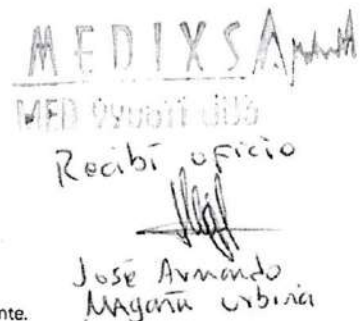 MEDIXSA
MED
Recibí oficio
José Armando
Magaña Urbina
nte.